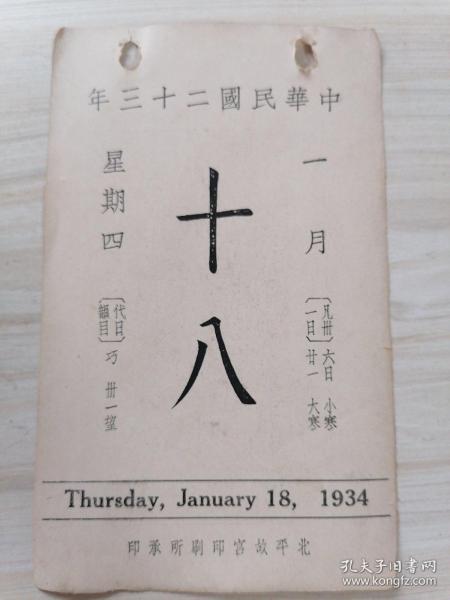 中華民國二十三年
一月
〔凡卅一日〕
六日 小寒
廿一 大寒
十八
星期四
〔韻目代日〕
巧 卅一望
Thursday, January 18, 1934
北平故宮印刷所承印
孔夫子旧书网
www.kongfz.com